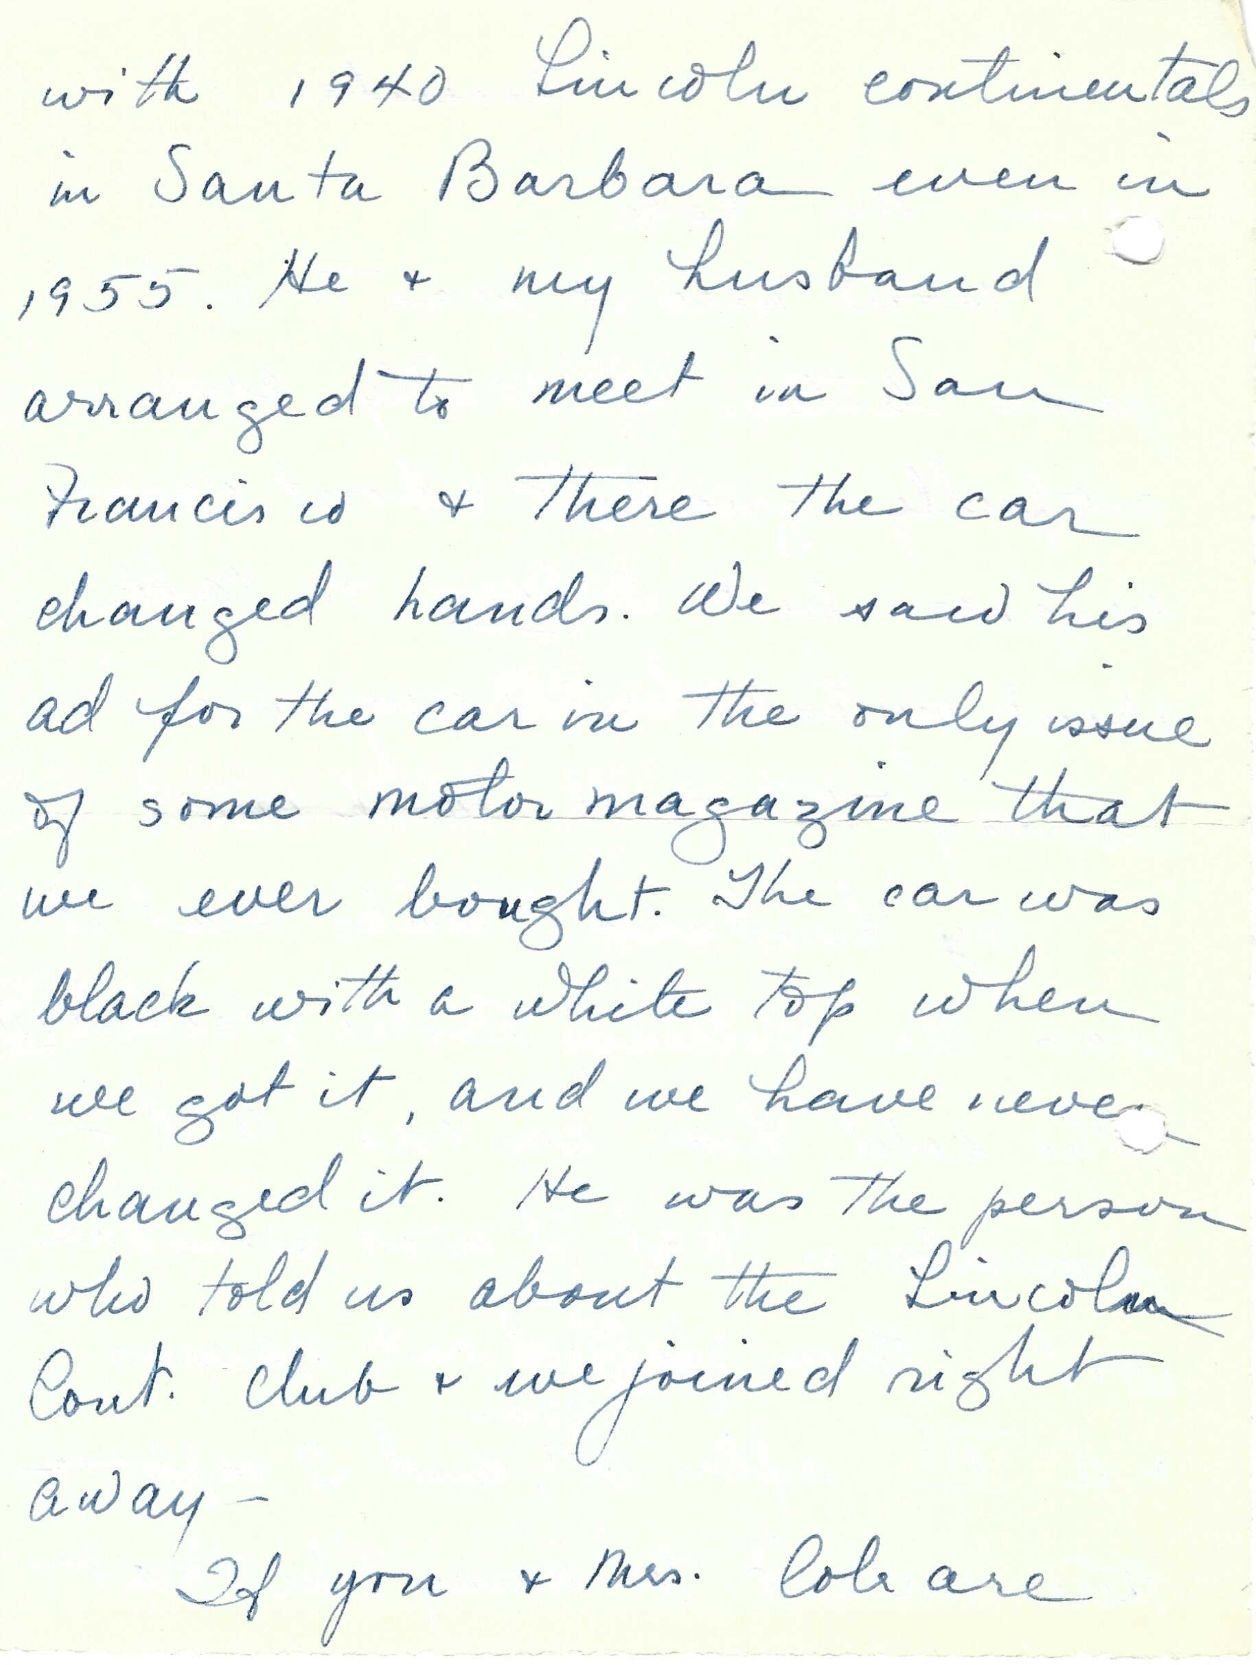 with 1940 Lincoln continentals
in Santa Barbara even in
1955. He & my husband
arranged to meet in San
Francisco & there the car
changed hands. We saw his
ad for the car in the only issue
of some motor magazine that
we ever bought. The car was
black with a white top when
we got it, and we have never
changed it. He was the person
who told us about the Lincoln
Cont. Club & we joined right
away –
If you & Mrs. Cole are